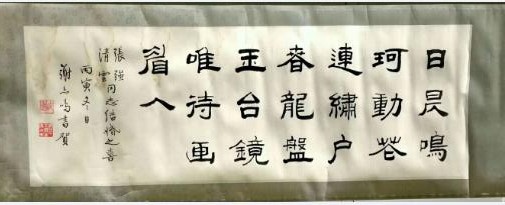 日晨鳴
珂動花
連繡户
春龍盤
玉台鏡
唯待画
眉人
張強
清雲同志結婚之喜
丙寅冬日
謝上鳴書賀